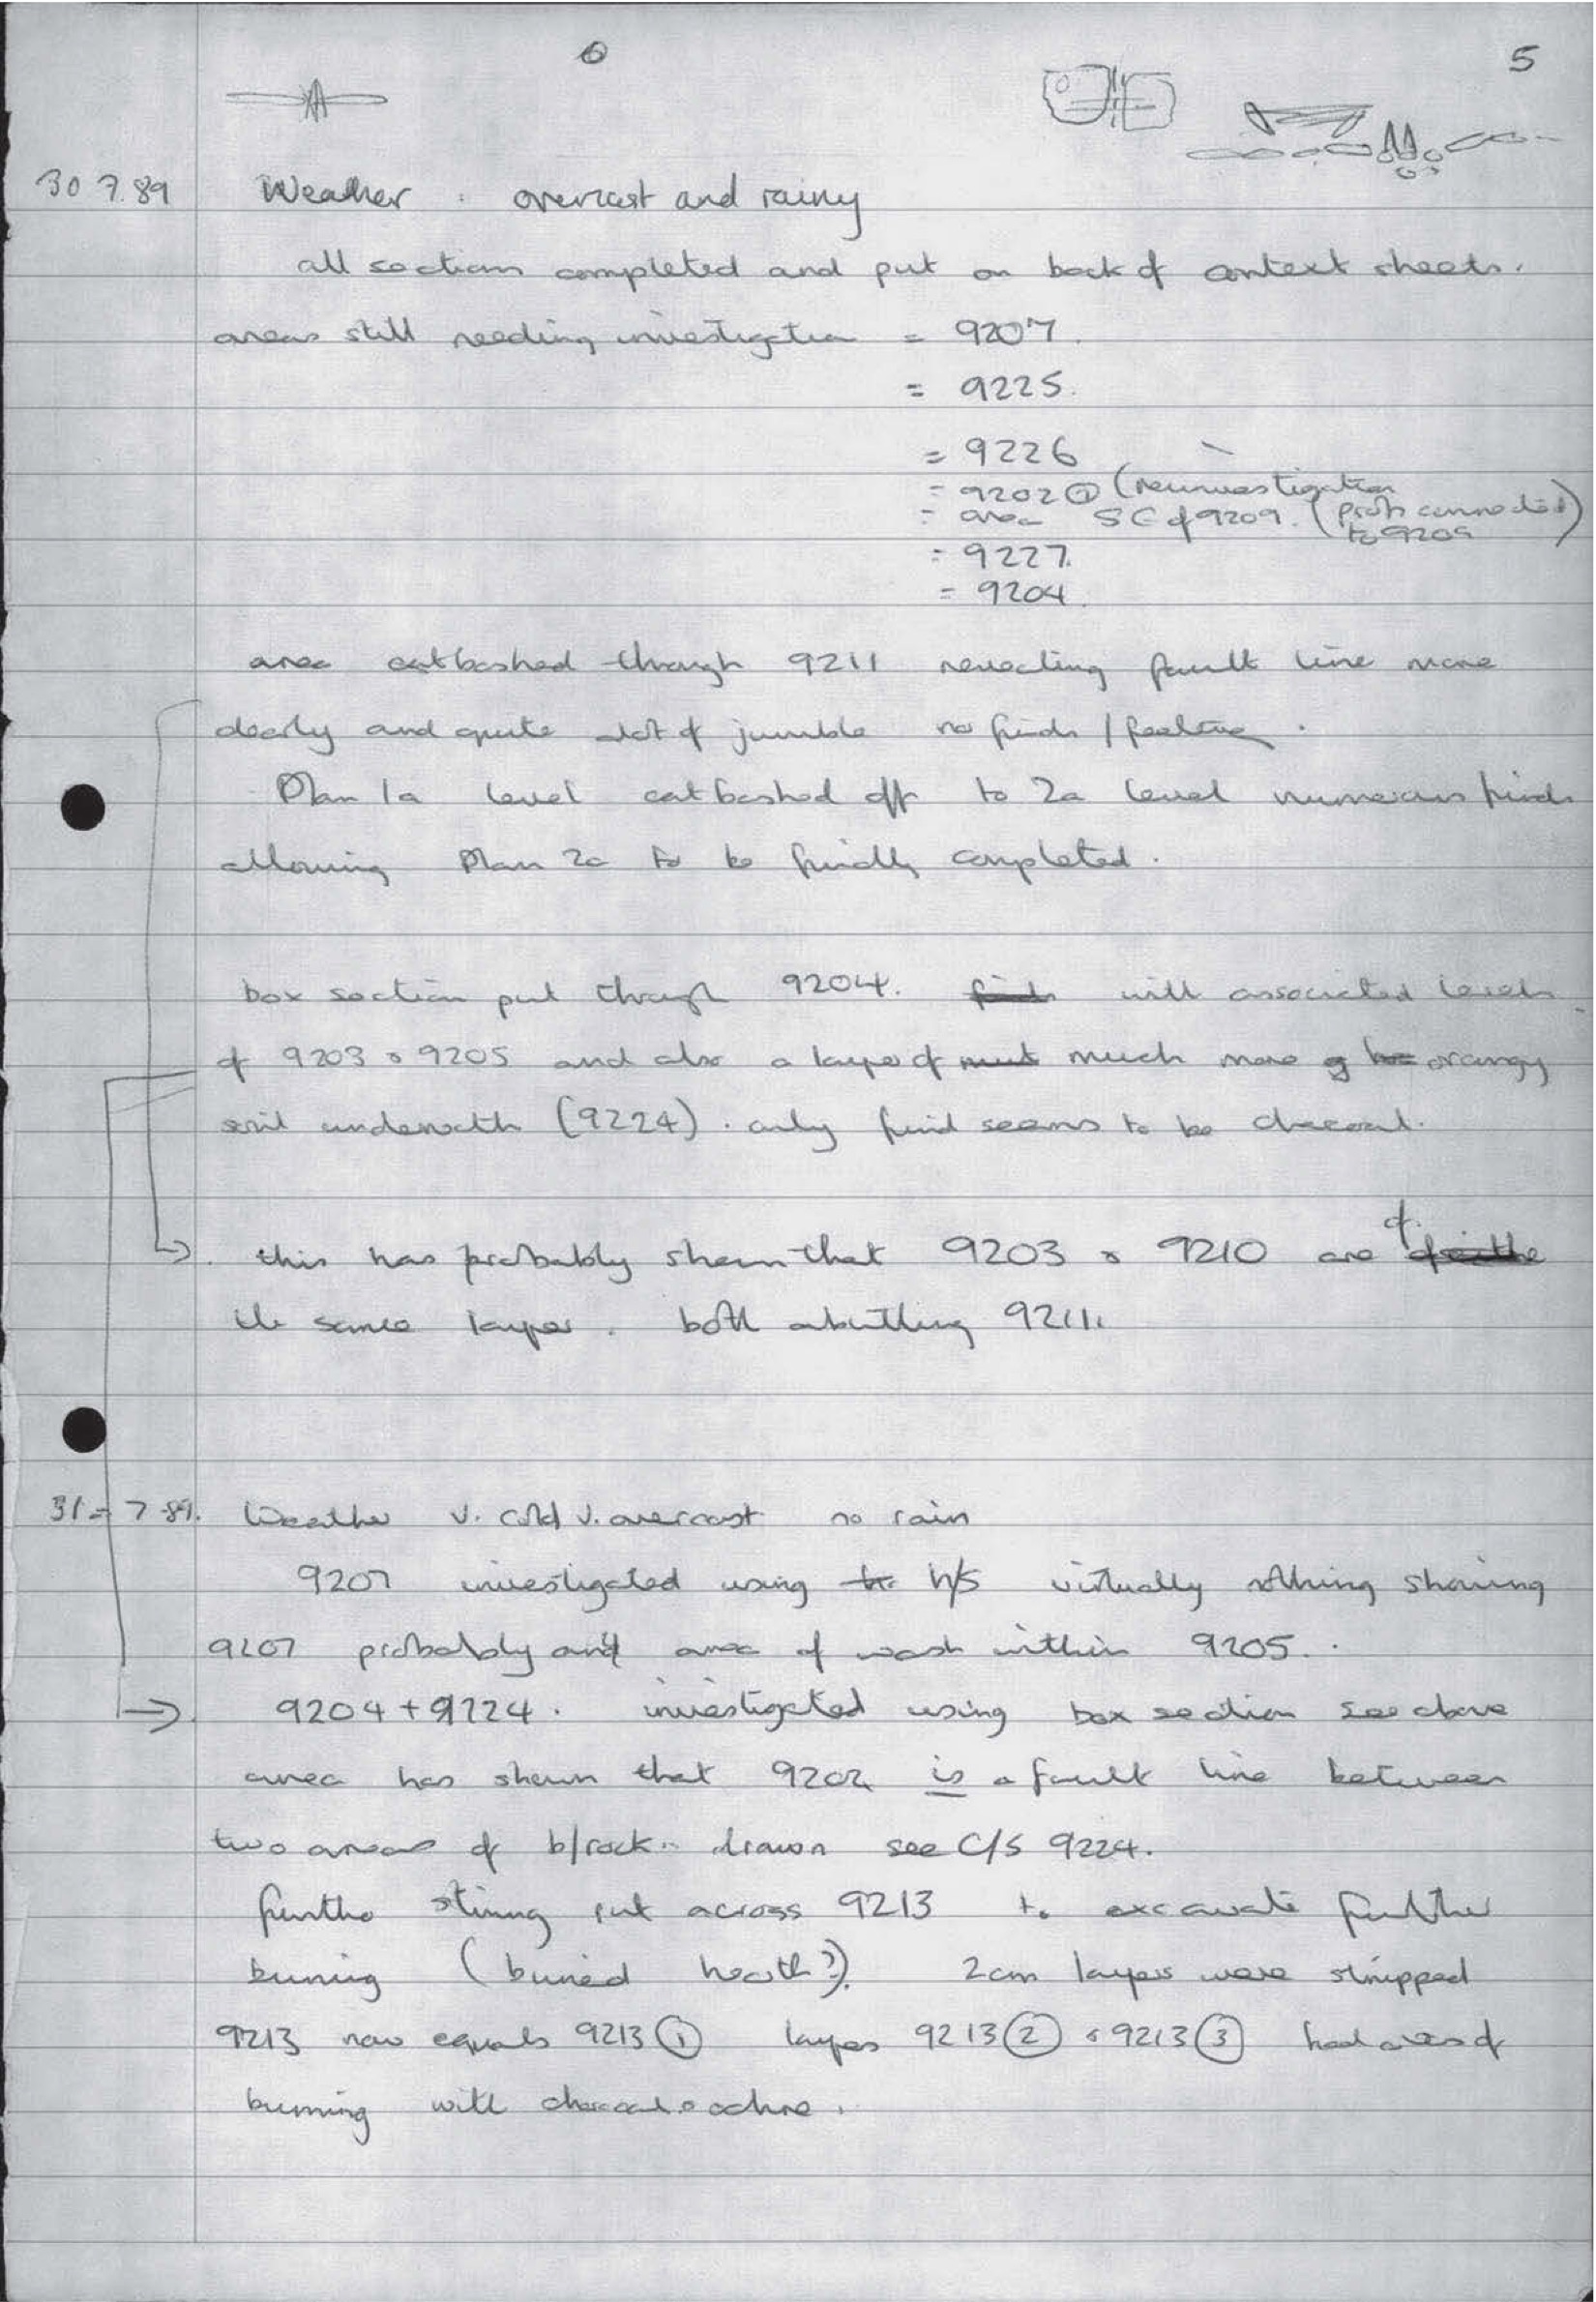 5
30 7.89 Weather : overcast and rainy
all sections completed and put on back of context sheets.
areas still needing investigation = 9207.
= 9225.
= 9226
= 9202 ① (reinvestigation
= area SE of 9209. (prob connected)
to 9209
= 9227.
= 9204.
area eatbashed through 9211 revealing fault line more
clearly and quite alot of jumble no finds / feature.
Plan 1a level eatbashed off to 2a level numerous finds
allowing Plan 2a to be finally completed.
box section put through 9204. finds with associated levels
of 9203 & 9205 and also a layer of much more orangy
soil underneath (9224). only find seems to be charcoal.
this has probably shown that 9203 & 9210 are of
the same layer. both abutting 9211.
31 = 7 89. Weather v. cold v. overcast no rain
9207 investigated using h/s virtually nothing showing
9207 probably area of wash within 9205.
9204 + 9224. investigated using box section see above
area has shown that 9202 is a fault line between
two areas of b/rock. drawn see C/S 9224.
further string put across 9213 to excavate further
burning (buried hearth?). 2cm layers were stripped
9213 now equals 9213 ① layers 9213 ② & 9213 ③ had areas of
burning with charcoal & ochre.